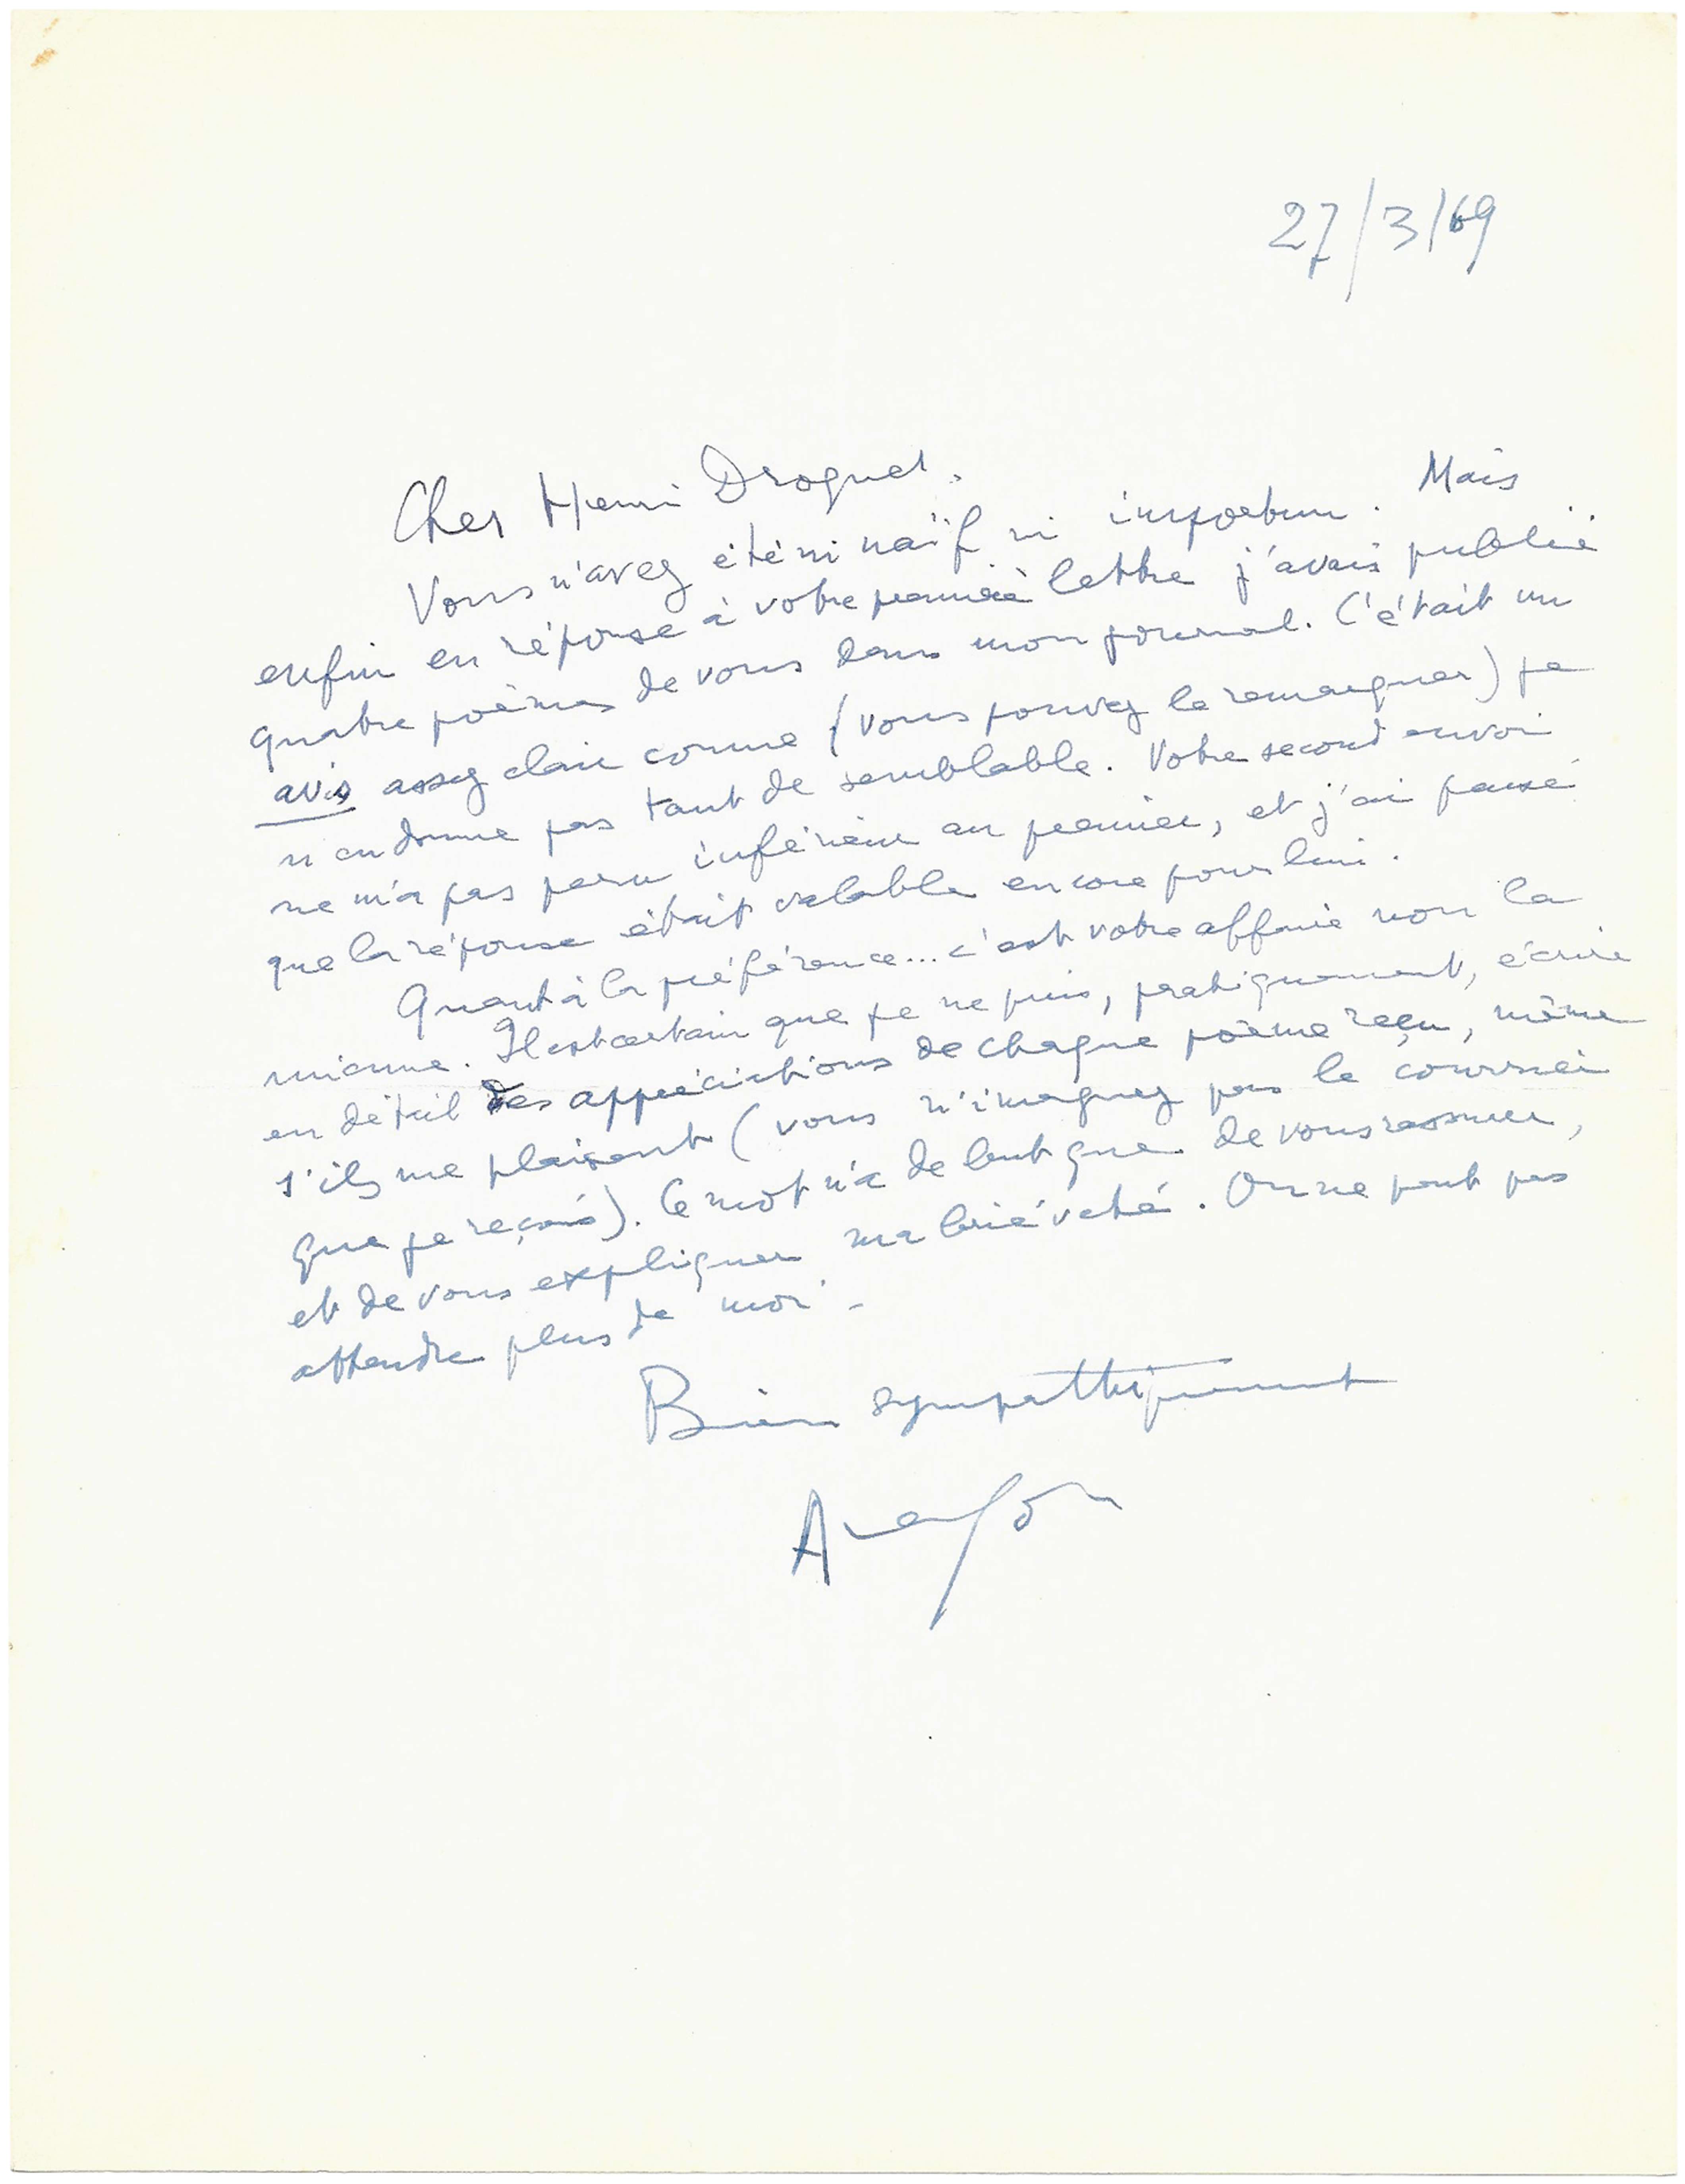 27/3/69
Cher Henri Droguet,
Vous n'avez été ni naïf ni importun. Mais
enfin en réponse à votre première lettre j'avais publié
quatre poèmes de vous dans mon journal. C'était un
avis assez clair comme (vous pouvez le remarquer) je
n'en donne pas tant de semblable. Votre second envoi
ne m'a pas paru inférieur au premier, et j'ai pensé
que la réponse était valable encore pour lui.
Quant à la préférence... c'est votre affaire non la
mienne. Il est certain que je ne puis, pratiquement, écrire
en détail des appréciations de chaque poème reçu, même
s'ils me plaisent (vous n'imaginez pas le courrier
que je reçois). Ce mot n'a de but que de vous rassurer,
et de vous expliquer ma brièveté. On ne peut pas
attendre plus de moi.
Bien sympathiquement
Aragon